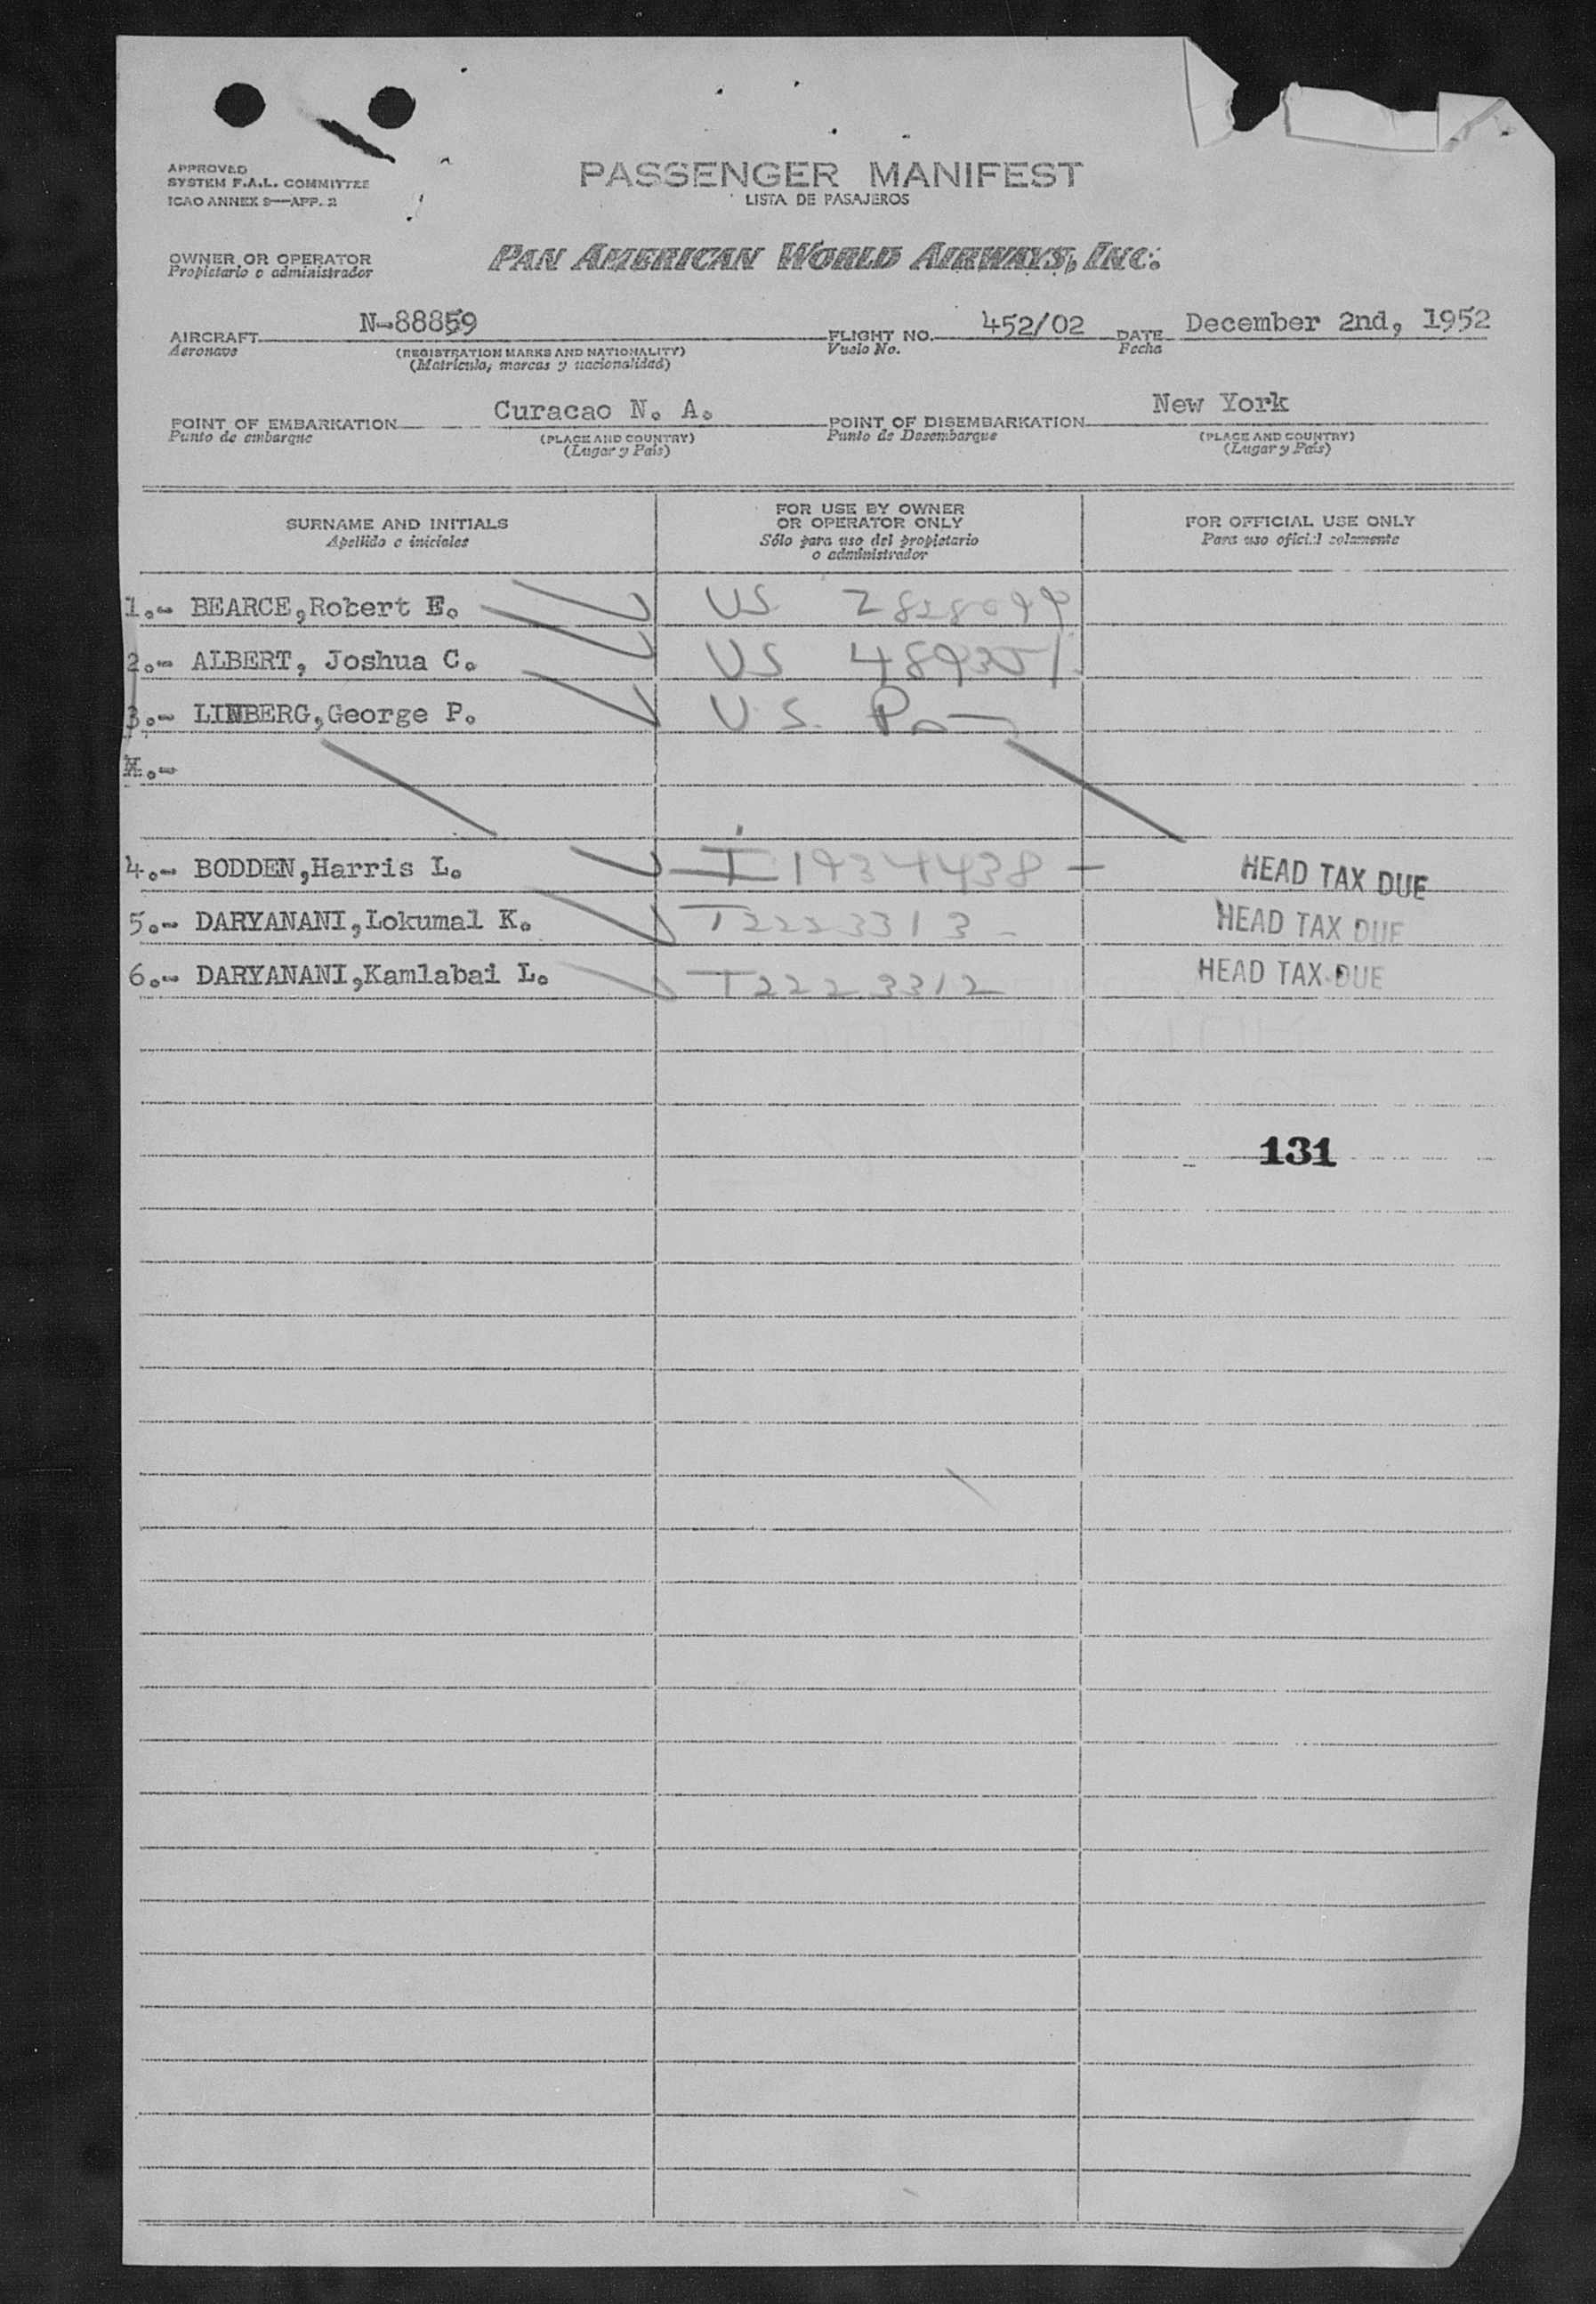 APPROVED
SYSTEM F.A.L. COMMITTEE
ICAO ANNEX 9—APP. 2
PASSENGER MANIFEST
LISTA DE PASAJEROS
OWNER OR OPERATOR
Propietario o administrador
PAN AMERICAN WORLD AIRWAYS, INC.
AIRCRAFT N-88859 FLIGHT NO. 452/02 DATE December 2nd, 1952
Aeronave (REGISTRATION MARKS AND NATIONALITY) Vuelo No. Fecha
(Matrícula, marcas y nacionalidad)
POINT OF EMBARKATION Curacao N. A. POINT OF DISEMBARKATION New York
Punto de embarque (PLACE AND COUNTRY) Punto de Desembarque (PLACE AND COUNTRY)
(Lugar y País) (Lugar y País)
SURNAME AND INITIALS
Apellido e iniciales
FOR USE BY OWNER
OR OPERATOR ONLY
Sólo para uso del propietario
o administrador
FOR OFFICIAL USE ONLY
Para uso oficial solamente
1.- BEARCE,Robert E. US
2.- ALBERT, Joshua C. US 489351
3.- LINBERG,George P. U.S.
4.- BODDEN,Harris L. HEAD TAX DUE
5.- DARYANANI,Lokumal K. T2223313 HEAD TAX DUE
6.- DARYANANI,Kamlabai L. T2223312 HEAD TAX DUE
131